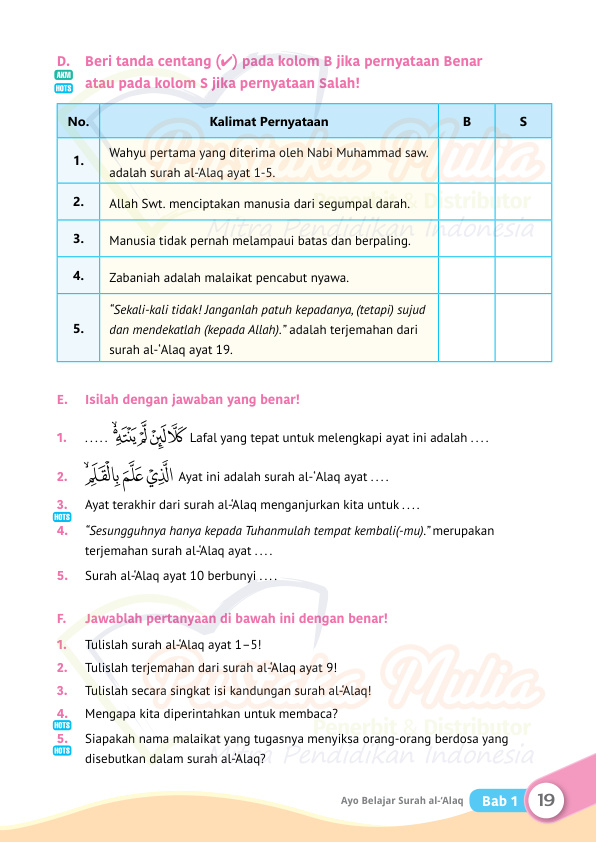 D. Beri tanda centang (✔) pada kolom B jika pernyataan Benar
AKM
HOTS
atau pada kolom S jika pernyataan Salah!
No. Kalimat Pernyataan B S
1. Wahyu pertama yang diterima oleh Nabi Muhammad saw.
adalah surah al-‘Alaq ayat 1-5.
2. Allah Swt. menciptakan manusia dari segumpal darah.
3. Manusia tidak pernah melampaui batas dan berpaling.
4. Zabaniah adalah malaikat pencabut nyawa.
5. “Sekali-kali tidak! Janganlah patuh kepadanya, (tetapi) sujud
dan mendekatlah (kepada Allah).” adalah terjemahan dari
surah al-‘Alaq ayat 19.
E. Isilah dengan jawaban yang benar!
1. ..... كَلَّا لَىِٕنْ لَّمْ يَنْتَهِ ەۙ Lafal yang tepat untuk melengkapi ayat ini adalah ....
2. الَّذِيْ عَلَّمَ بِالْقَلَمِۙ Ayat ini adalah surah al-‘Alaq ayat ....
3. Ayat terakhir dari surah al-‘Alaq menganjurkan kita untuk ....
HOTS
4. “Sesungguhnya hanya kepada Tuhanmulah tempat kembali(-mu).” merupakan
terjemahan surah al-‘Alaq ayat ....
5. Surah al-‘Alaq ayat 10 berbunyi ....
F. Jawablah pertanyaan di bawah ini dengan benar!
1. Tulislah surah al-‘Alaq ayat 1–5!
2. Tulislah terjemahan dari surah al-‘Alaq ayat 9!
3. Tulislah secara singkat isi kandungan surah al-‘Alaq!
4. Mengapa kita diperintahkan untuk membaca?
HOTS
5. Siapakah nama malaikat yang tugasnya menyiksa orang-orang berdosa yang
HOTS
disebutkan dalam surah al-‘Alaq?
Pustaka Mulia
Penerbit & Distributor
Mitra Pendidikan Indonesia
Pustaka Mulia
Penerbit & Distributor
Mitra Pendidikan Indonesia
Ayo Belajar Surah al-‘Alaq Bab 1 19